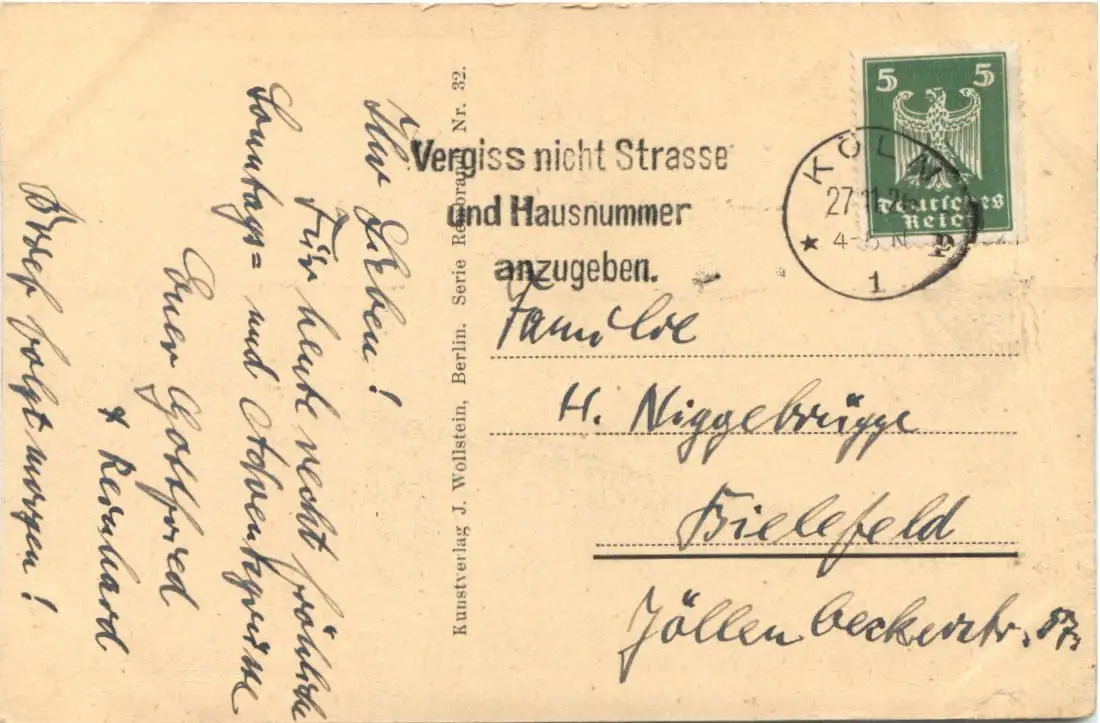 Ihr Lieben!
Für heute recht fröhliche
Sonntags= und Adventsgrüsse
Euer Gottfried
+ Reinhard
Brief folgt morgen!
Kunstverlag J. Wollstein, Berlin. Serie Nr. 32.
Vergiss nicht Strasse
und Hausnummer
anzugeben.
5 5
Deutsches
Reich
KÖLN
27.11.
1
Familie
H. Niggebrügge
Bielefeld
Jöllenbeckerstr.